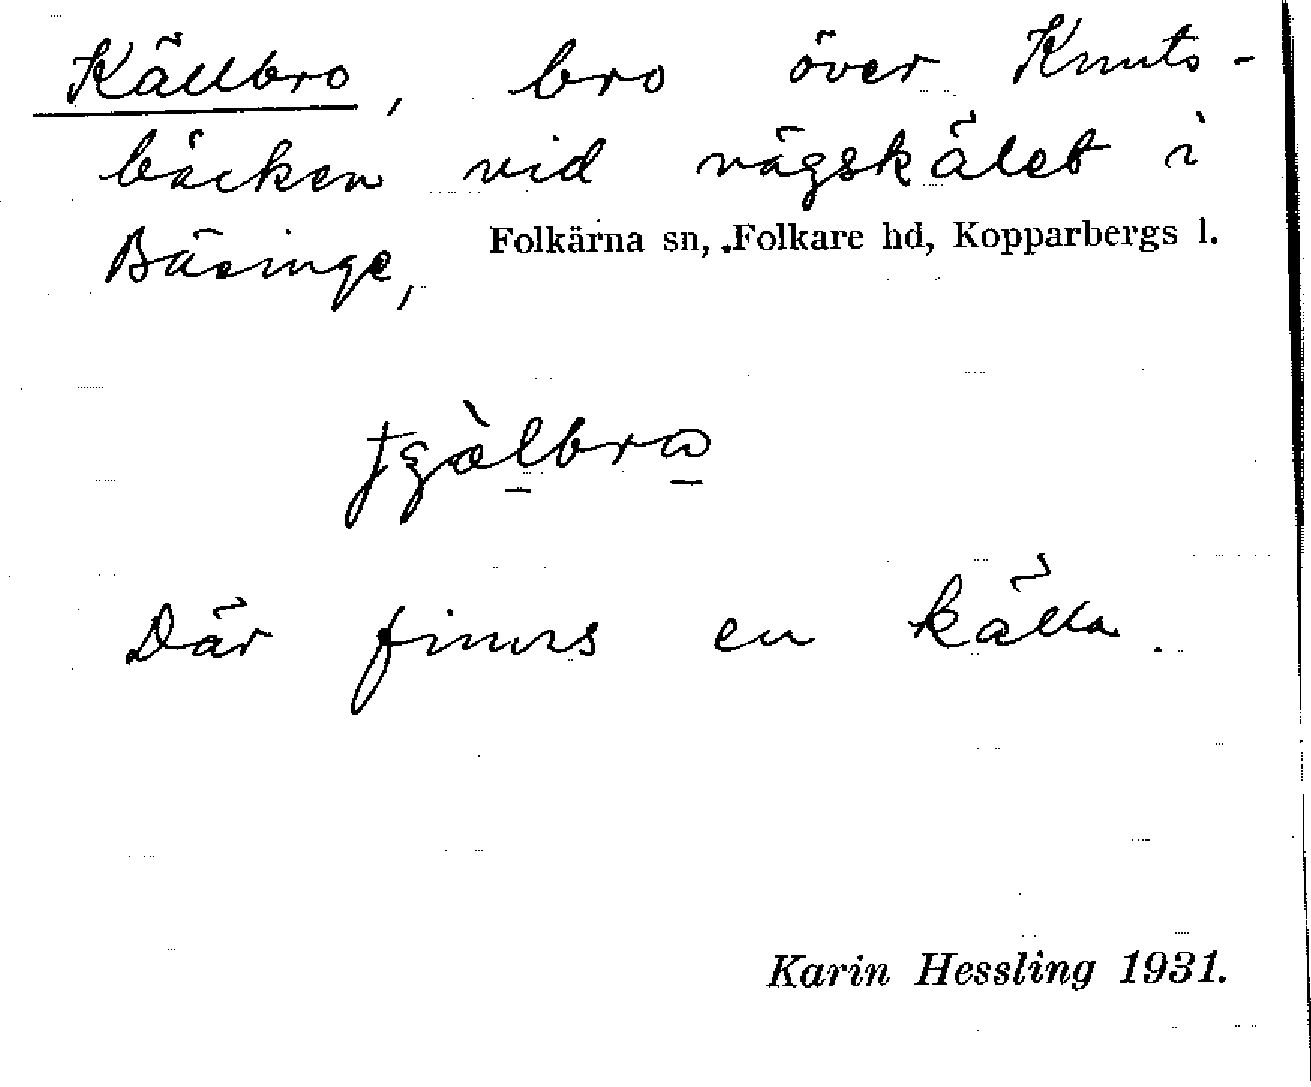 Källbro, bro över Knuts-
bäcken vid vägskälet i
Bäsinge, Folkärna sn, Folkare hd, Kopparbergs l.
Där finns en källa.
Karin Hessling 1931.